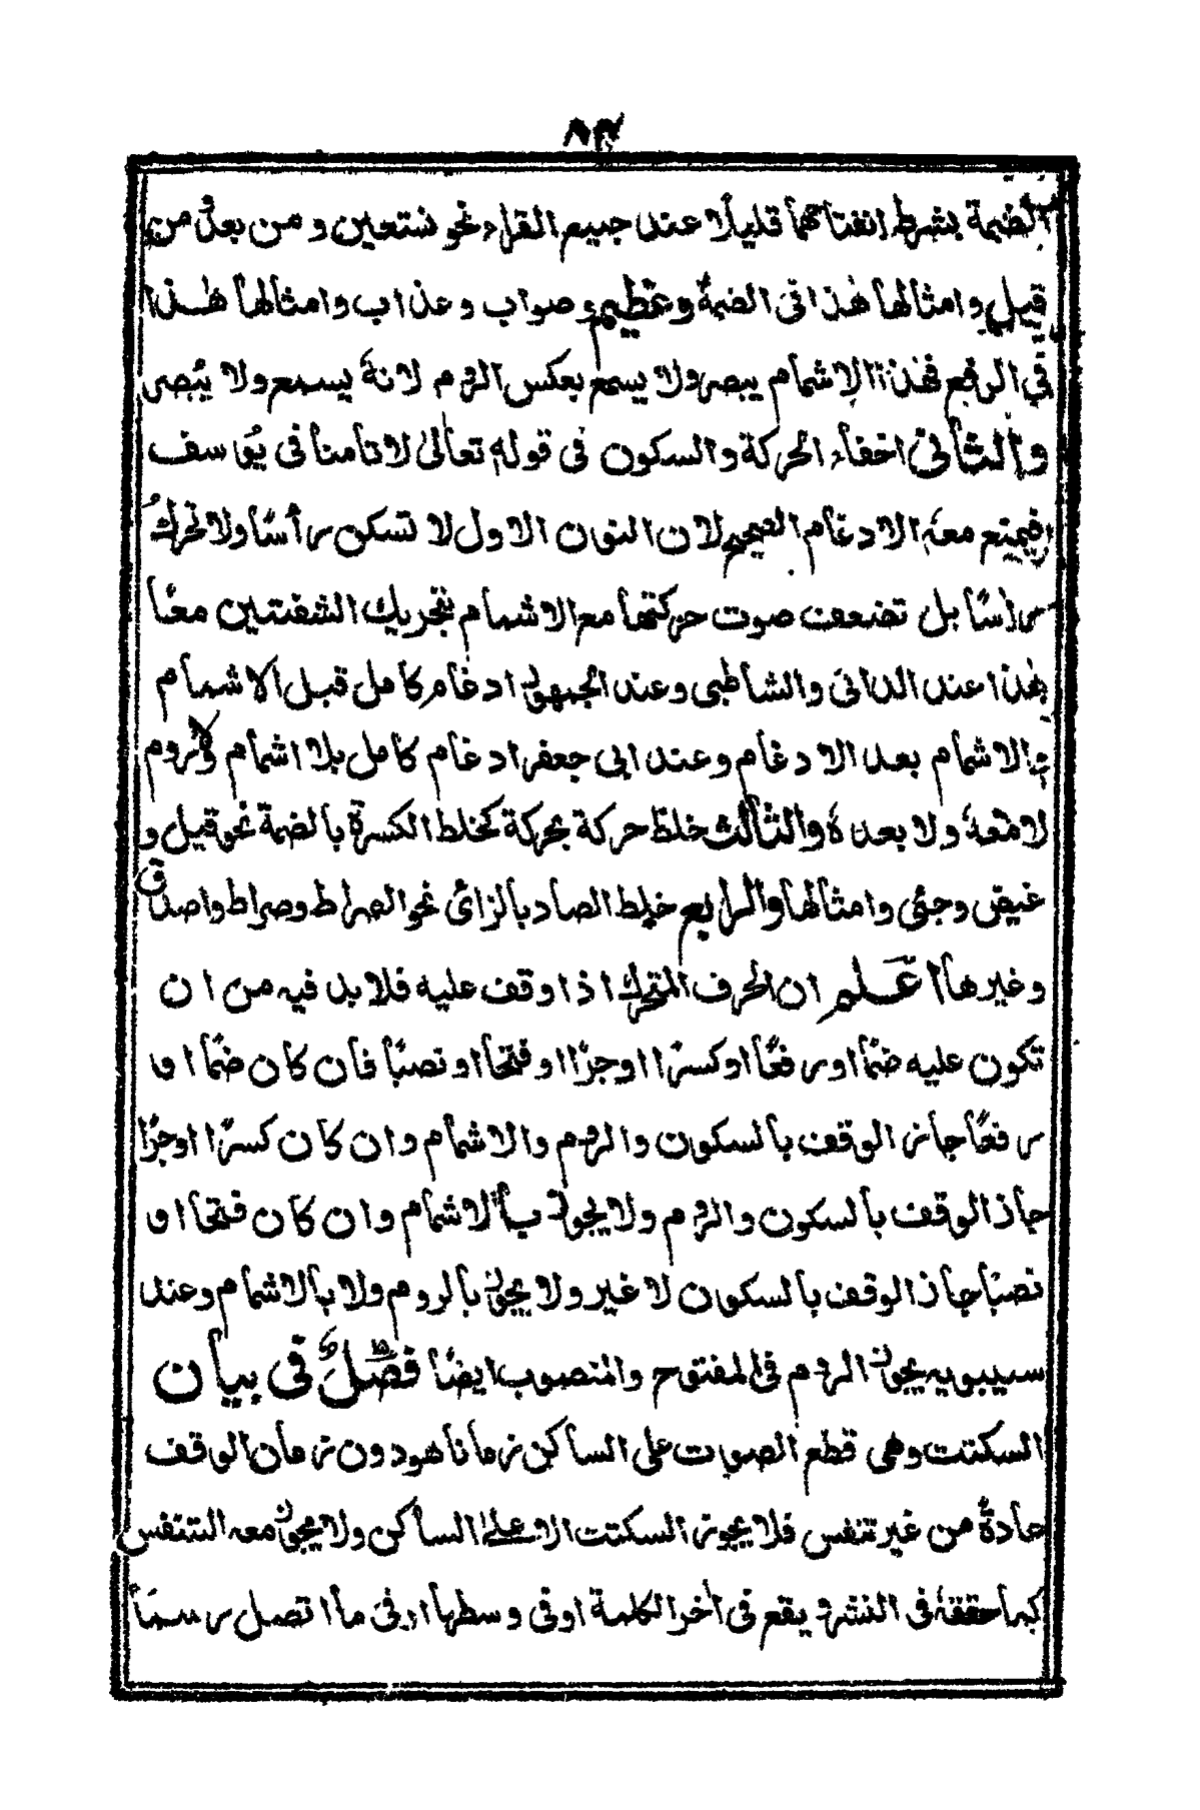 ٨٣
الضمة بشرط انفتاحهما قليلًا عند جميع القراء نحو نستعين و من بعدُ من
قبل و امثالها هٰذا فى الضمة و عظيم و صواب و عذاب و امثالها هٰذا
فى الرفع فهٰذا الاشمام يبصر ولا يسمع بعكس الروم لانهٗ يسمع ولا يبصر
والثانى اخفاء الحركة والسكون فى قولهٖ تعالىٰ لا تامنا فى يوسف
فيمتنع معهٗ الادغام الصحيح لان النون الاول لا تسكن رأسًا ولا تحرك
راسًا بل تضعف صوت حركتها مع الاشمام بتحريك الشفتين معًا
هٰذا عند الدانى والشاطبى وعند الجمهور ادغام كامل قبل الاشمام
والاشمام بعد الادغام وعند ابى جعفر ادغام كامل بلا اشمام ولا روم
لا معهٗ ولا بعدهٗ والثالث خلط حركة بحركة كخلط الكسرة بالضمة نحو قيل و
غيض وجئ وامثالها والرابع خلط الصاد بالزائ نحو الصراط وصراط واصدق
وغيرها اعلم ان الحرف المتحرك اذا وقف عليه فلا بد فيه من ان
تكون عليه ضمًا او رفعًا او كسرًا او جرًا او فتحا او نصبًا فان كان ضمًا او
رفعًا جاز الوقف بالسكون والروم والاشمام وان كان كسرًا او جرًا
جاز الوقف بالسكون والروم ولا يجوز بالاشمام وان كان فتحا او
نصبًا جاز الوقف بالسكون لا غير ولا يجوز بالروم ولا بالاشمام وعند
سيبويه يجوز الروم فى المفتوح والمنصوب ايضًا فصلٌ فى بيان
السكتت وهى قطع الصوت على الساكن زمانا هو دون زمان الوقف
عادةً من غير تنفس فلا يجوز السكتت الا علىٰ الساكن ولا يجوز معه التنفس
كما حققهٗ فى النشر و يقع فى اٰخر الكلمة او فى وسطها او فى ما اتصل رسمًا